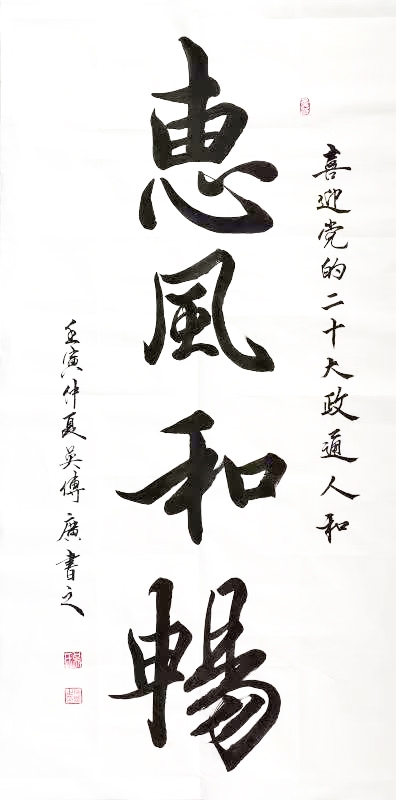 喜迎党的二十大政通人和
惠風和暢
壬寅仲夏吴傅廣書之